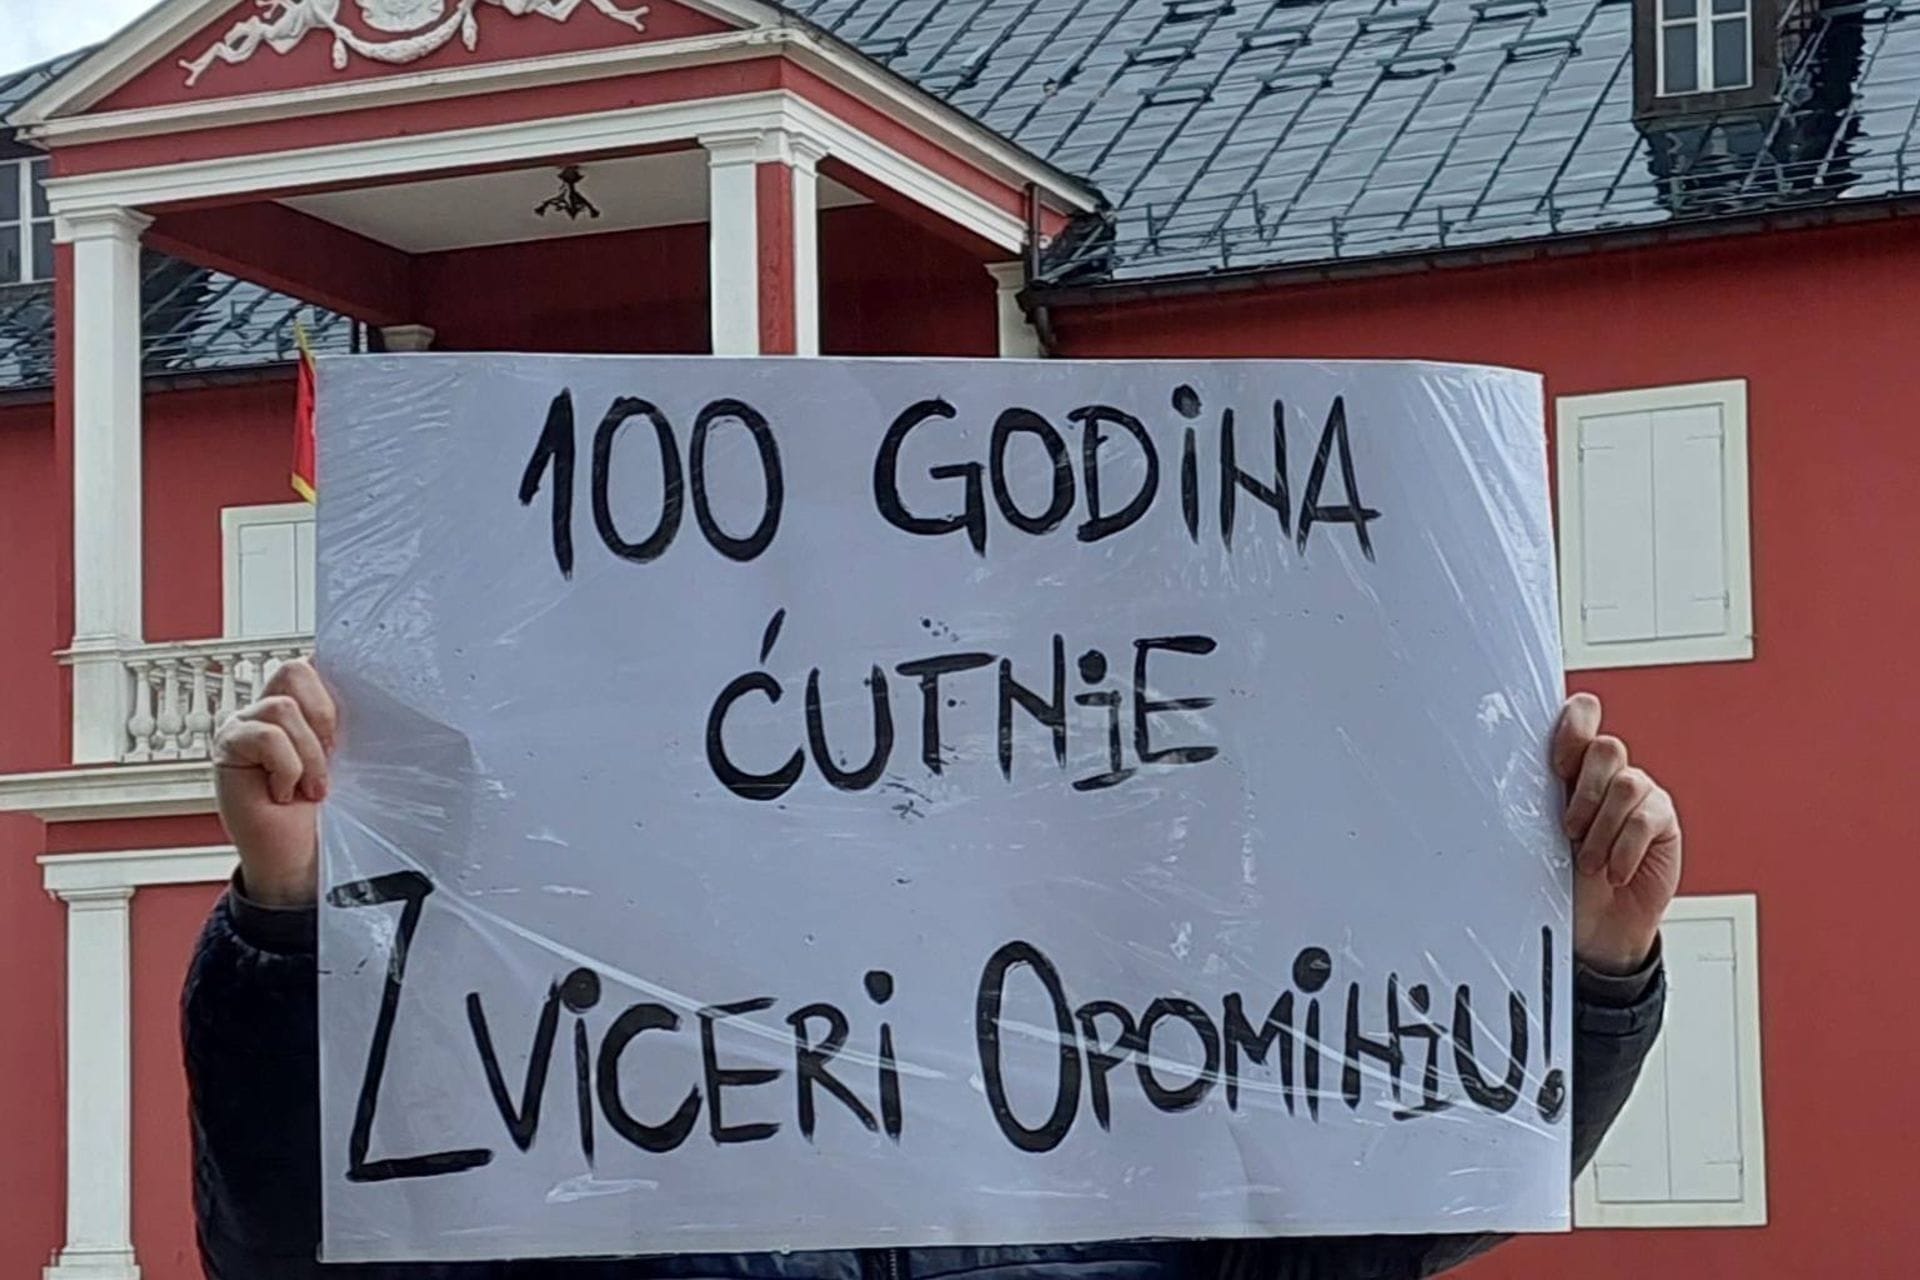 100 GODINA
ĆUTNJE
ZVICERI OPOMINJU!